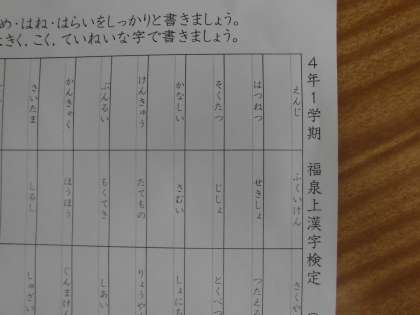 め・はね・はらいをしっかりと書きましょう。
きく、こく、ていねいな字で書きましょう。
4年1学期 福泉上漢字検定
えんじ
はつねつ
そくたつ
かなしい
けんきゅう
ぶんるい
かんきゃく
さいたま
ふくいけん
せきしょ
じしょ
さむい
たてもの
もくてき
ほうほう
しるし
さくや
つたえる
とくべつ
しょにち
りょうや
しあい
ぐんまけん
しゅざい